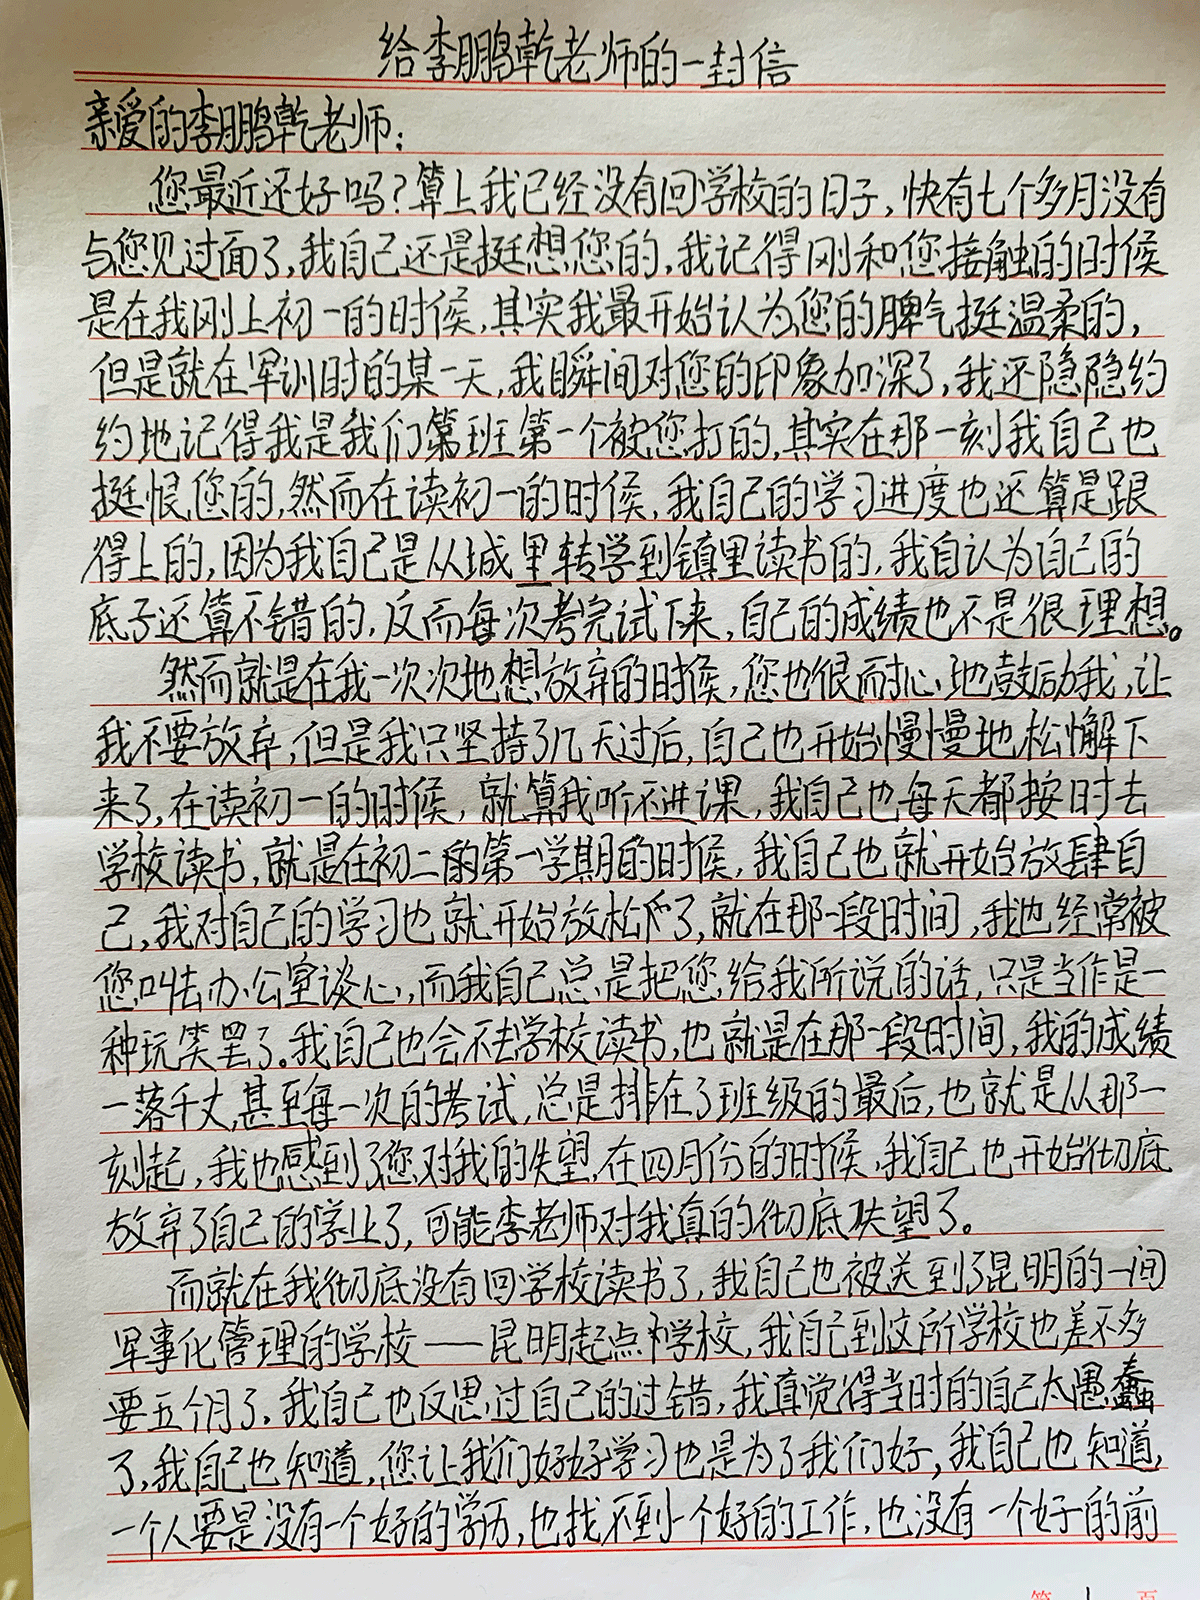 给李鹏乾老师的一封信
亲爱的李鹏乾老师：
您最近还好吗？算上我已经没有回学校的日子，快有七个多月没有
与您见过面了，我自己还是挺想您的，我记得刚和您接触的时候
是在我刚上初一的时候，其实我最开始认为您的脾气挺温柔的，
但是就在军训时的某一天，我瞬间对您的印象加深了，我还隐隐约
约地记得我是我们第班第一个被您打的，其实在那一刻我自己也
挺恨您的，然而在读初一的时候，我自己的学习进度也还算是跟
得上的，因为我自己是从城里转学到镇里读书的，我自认为自己的
底子还算不错的，反而每次考完试下来，自己的成绩也不是很理想。
然而就是在我一次次地想放弃的时候，您也很耐心地鼓励我，让
我不要放弃，但是我只坚持了几天过后，自己也开始慢慢地松懈下
来了，在读初一的时候，就算我听不进课，我自己也每天都按时去
学校读书，就是在初二的第一学期的时候，我自己也就开始放肆自
己，我对自己的学习也就开始放松了，就在那一段时间，我也经常被
您叫去办公室谈心，而我自己总是把您给我所说的话，只是当作是一
种玩笑罢了。我自己也会不去学校读书，也就是在那一段时间，我的成绩
一落千丈，甚至每一次的考试，总是排在了班级的最后，也就是从那一
刻起，我也感到了您对我的失望，在四月份的时候，我自己也开始彻底
放弃了自己的学业了，可能李老师对我真的彻底失望了。
而就在我彻底没有回学校读书了，我自己也被送到了昆明的一间
军事化管理的学校——昆明起点学校，我自己到这所学校也差不多
要五个月了，我自己也反思过自己的过错，我真觉得当时的自己太愚蠢
了，我自己也知道，您让我们好好学习也是为了我们好，我自己也知道，
一个人要是没有一个好的学历，也找不到一个好的工作，也没有一个好的前
第 1 页